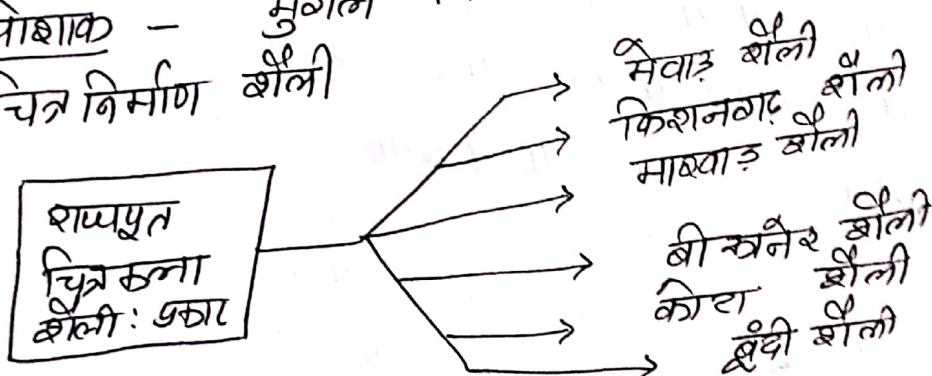 पोशाक - मुगल
चित्र निर्माण शैली
राजपूत
चित्रकला
शैली : प्रकार
मेवाड़ शैली
किशनगढ़ शैली
मारवाड़ शैली
बीकानेर शैली
कोटा शैली
बूंदी शैली